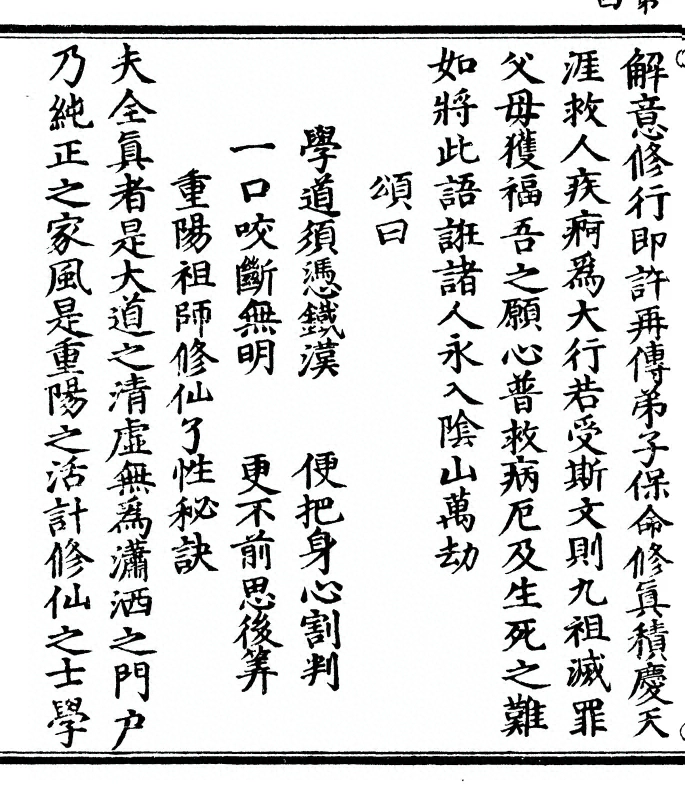 解意修行即許再傳弟子保命修眞積慶天
涯救人疾痾爲大行若受斯文則九祖滅罪
父母獲福吾之願心普救病厄及生死之難
如將此語誑諸人永入陰山萬劫
頌曰
學道須憑鐵漢　便把身心割判
一口咬斷無明　更不前思後筭
重陽祖師修仙了性秘訣
夫全眞者是大道之清虛無爲瀟洒之門户
乃純正之家風是重陽之活計修仙之士學